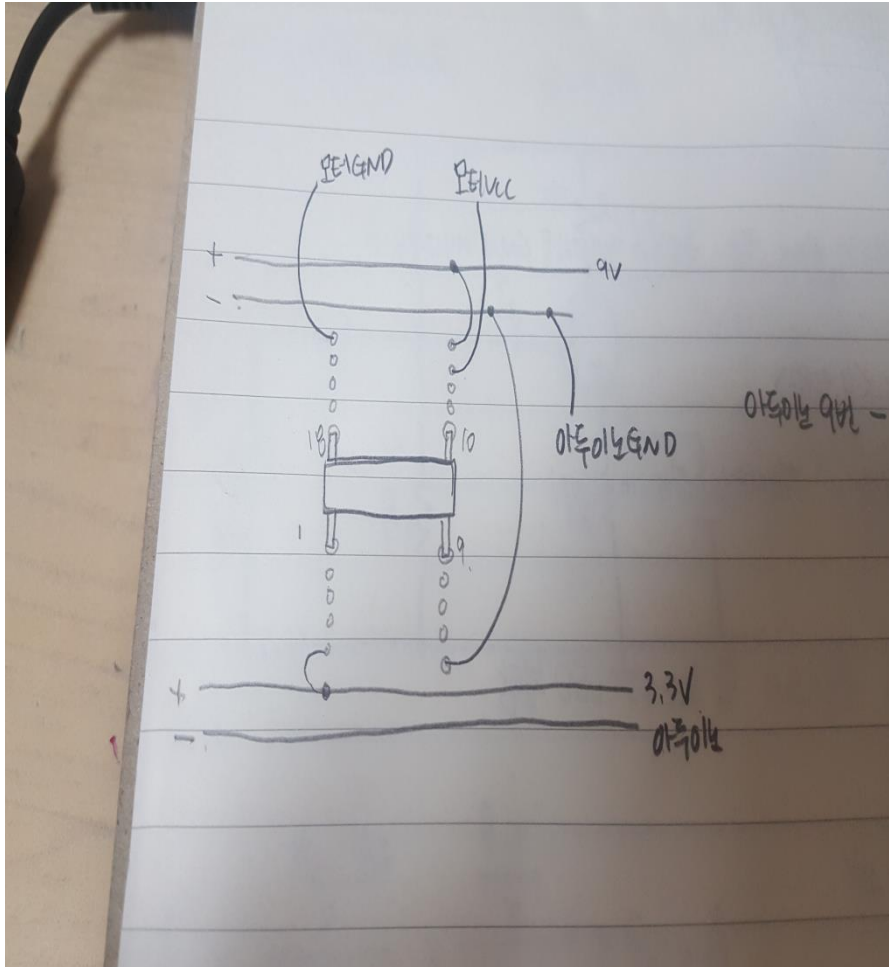 모터GND 모터VCC
+ 9V
-
18 10
아두이노GND
아두이노 9번 -
1 9
+ 3.3V
- 아두이노